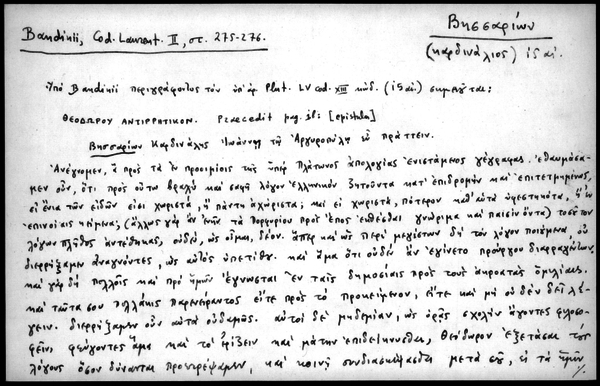 Bandinii, Cod. Laurent. II, στ. 275-276.
Βησσαρίων
(καρδινάλιος) ιςʹ αἰ.
Ὑπὸ Bandinii περιγράφοντος τὸν ὑπ' ἀρ. Plut. LV cod. XIII κώδ. (ιςʹ αἰ.) σημειοῦται:
ΘΕΟΔΩΡΟΥ ΑΝΤΙΡΡΗΤΙΚΟΝ. Praecedit pag. [epistula]
Βησσαρίων Καρδινάλης Ἰωάννῃ τῷ Ἀργυροπούλῳ εὖ πράττειν.
Ἀνέγνωμεν, ἃ πρὸς τὰ ἐν προοιμίοις τῆς ὑπὲρ Πλάτωνος ἀπολογίας ἐνιστάμενος γέγραφας. ἐθαυμάσα-
μεν οὖν, ὅτι πρὸς οὕτω βραχὺν καὶ σαφῆ λόγον ἑλληνικὸν ζητοῦντα κατ' ἐπιδρομὴν καὶ ἐπιτετμημένως,
εἰ ἔνια τῶν εἰδῶν εἰσι χωριστά, ἢ πάντῃ ἀχώριστα; καὶ εἰ χωριστά, πότερον καθ' αὑτὰ ὑφεστηκότα, ἢ ἐν
ἐπινοίαις κείμενα; (ἄλλως γὰρ ἐνῆν τὰ Πορφυρίου πρὸς ἔπος ἐκθέσθαι γνώριμα καὶ παισὶν ὄντα) τοσοῦτον
λόγων πλῆθος ἀντέθηκας, οὐδέν, ὡς οἶμαι, δέον. ἅπερ καὶ ὡς περὶ μεγίστων δὴ τὸν λόγον ποιούμενα, οὐ
διερρήξαμεν ἀναγνόντες, ὡς αὐτὸς ὑπετίθου. καὶ ἅμα ὅτι οὐδὲν ἂν ἐγίνετο προὔργου διαρραγέντων.
καὶ γὰρ δὴ πολλοῖς καὶ πρὸ ἡμῶν ἔγνωσται ἐν ταῖς δημοσίαις πρὸς τοὺς ἀκροατὰς ὁμιλίαις.
καὶ ταῦτα σου πολλάκις παρενείραντος εἴτε πρὸς τὸ προκείμενον, εἴτε καὶ μὴ οὐδὲν δεῖ λέ-
γειν. διερρήξαμεν οὖν αὐτὰ οὐδαμῶς. αὐτοὶ δὲ μηδεμίαν, ὡς ὁρᾷς σχολὴν ἄγοντες φιλοσο-
φεῖν, φεύγοντες ἅμα καὶ τὸ ἐρίζειν καὶ μάτην ἐπιδείκνυσθαι, Θεόδωρον ἐξετάσαι τοὺς
λόγους ὅσον δύνανται προετρέψαμεν, καὶ κοινῇ συνδιασκέψασθαι μετὰ σοῦ, εἰ τὰ ἡμῶν